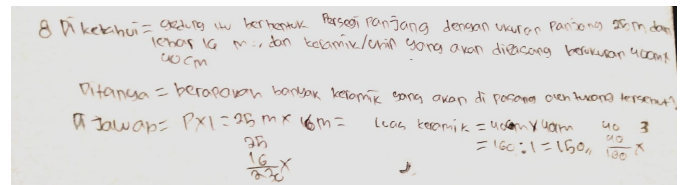 8 Diketahui = gedung itu berbentuk Persegi Panjang dengan ukuran Panjang 25 m, dan
lebar 16 m., dan keramik/ubin yang akan dipasang berukuran 40cm x
40 cm
Ditanya = berapakah banyak keramik yang akan di pasang oleh tukang tersebut?
Di Jawab = P x l = 25 m x 16 m = Luas keramik = 40cm x 40cm 40 3
= 160 : 1 = 150,, 40 x
25 160
16 x
220